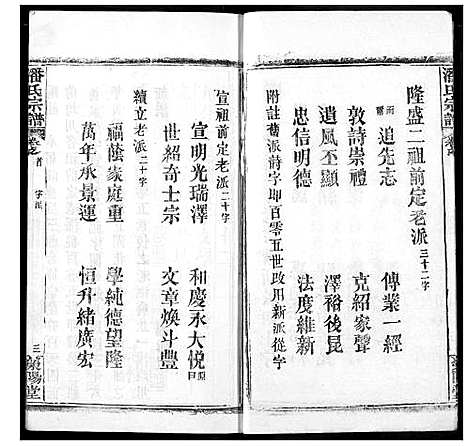 潘氏宗譜
隆盛二祖前定老派三十二字
雨追先志 傳業一經
敦詩崇禮 克紹家聲
遺風丕顯 澤裕後昆
忠信明德 法度維新
附註舊派詩字坤百零五世改用新派從字
宣祖前定老派二十字
宣明光瑞澤 和慶永大悅
世紹奇士宗 文章煥斗豐
續立老派二十字
福蔭家庭重 學純德望隆
萬年承景運 恒升緒廣宏
潘氏宗譜
卷之首 字派
三 滎陽堂